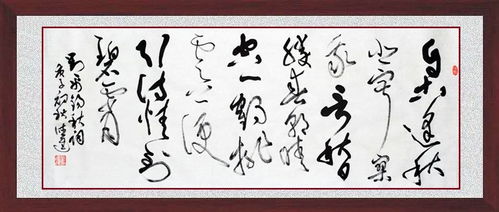 自古逢秋
悲寂寥
我言秋日
胜春朝晴
空一鹤排
云上便
引诗情到
碧霄
刘禹锡秋词
庚子初秋